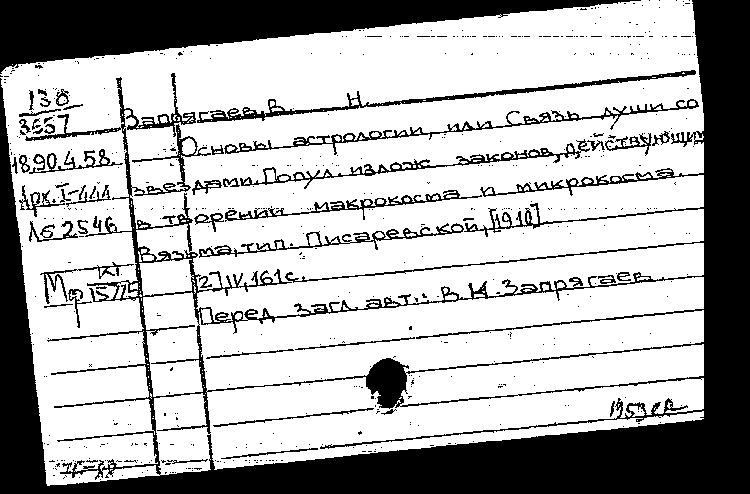 130
3657
Запрягаев, В. Н.
18.90.4.58.
Основы астрологии, или Связь души со
Арх. I-444
звездами. Попул. излож законов, действующих
№ 2546
в творении макрокосма и микрокосма.
Вязьма, тип. Писаревской, [1910].
Мф К1 15/715
[2], IV, 161 с.
Перед загл. авт.: В. Н. Запрягаев.